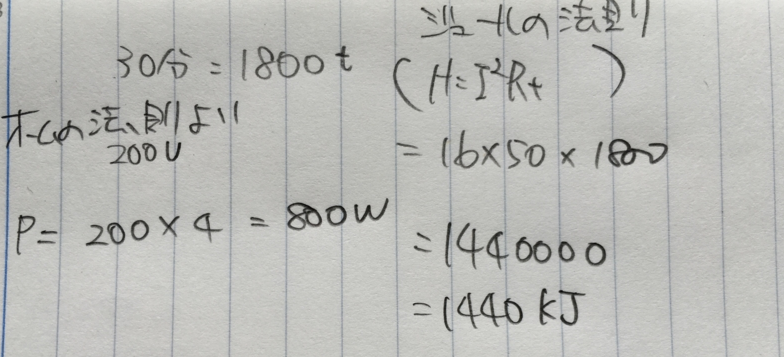 30分 = 1800t
オームの法則より
200V
P = 200×4 = 800W
ジュールの法則
(H=I²Rt)
= 16×50×1800
= 1440000
= 1440 kJ